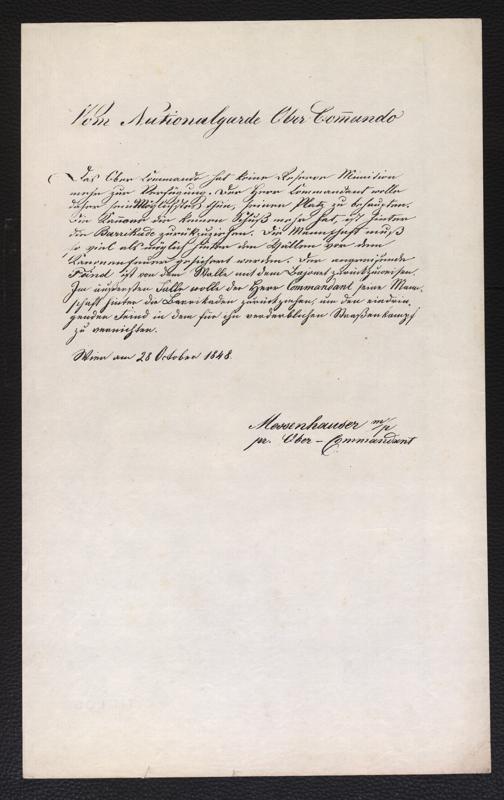 Vom Nationalgarde Ober-Com̄ando
Das Ober Com̄ando hat keine Reserve Munition
mehr zur Verfügung. Der Herr Commandant wolle
daher sein Möglichstes thun, seinen Platz zu behaupten.
Die Kanone die keinen Schuß mehr hat, ist hinter
die Barrikade zurückzuziehen. Die Mannschaft muß
so viel als möglich hinter den Wällen vor dem
Kanonenfeuer gesichert werden. Der angreifende
Feind ist von dem Walle mit dem Bajonet zurückzuweisen.
Im äußersten Falle wolle der Herr Commandant seine Mann
schaft hinter die Barrikaden zurückziehen, um den eindrin
genden Feind in dem für ihn verderblichen Straßenkampf
zu vernichten.
Wien am 28 October 1848.
Messenhauser m/p
pr. Ober-Commandant